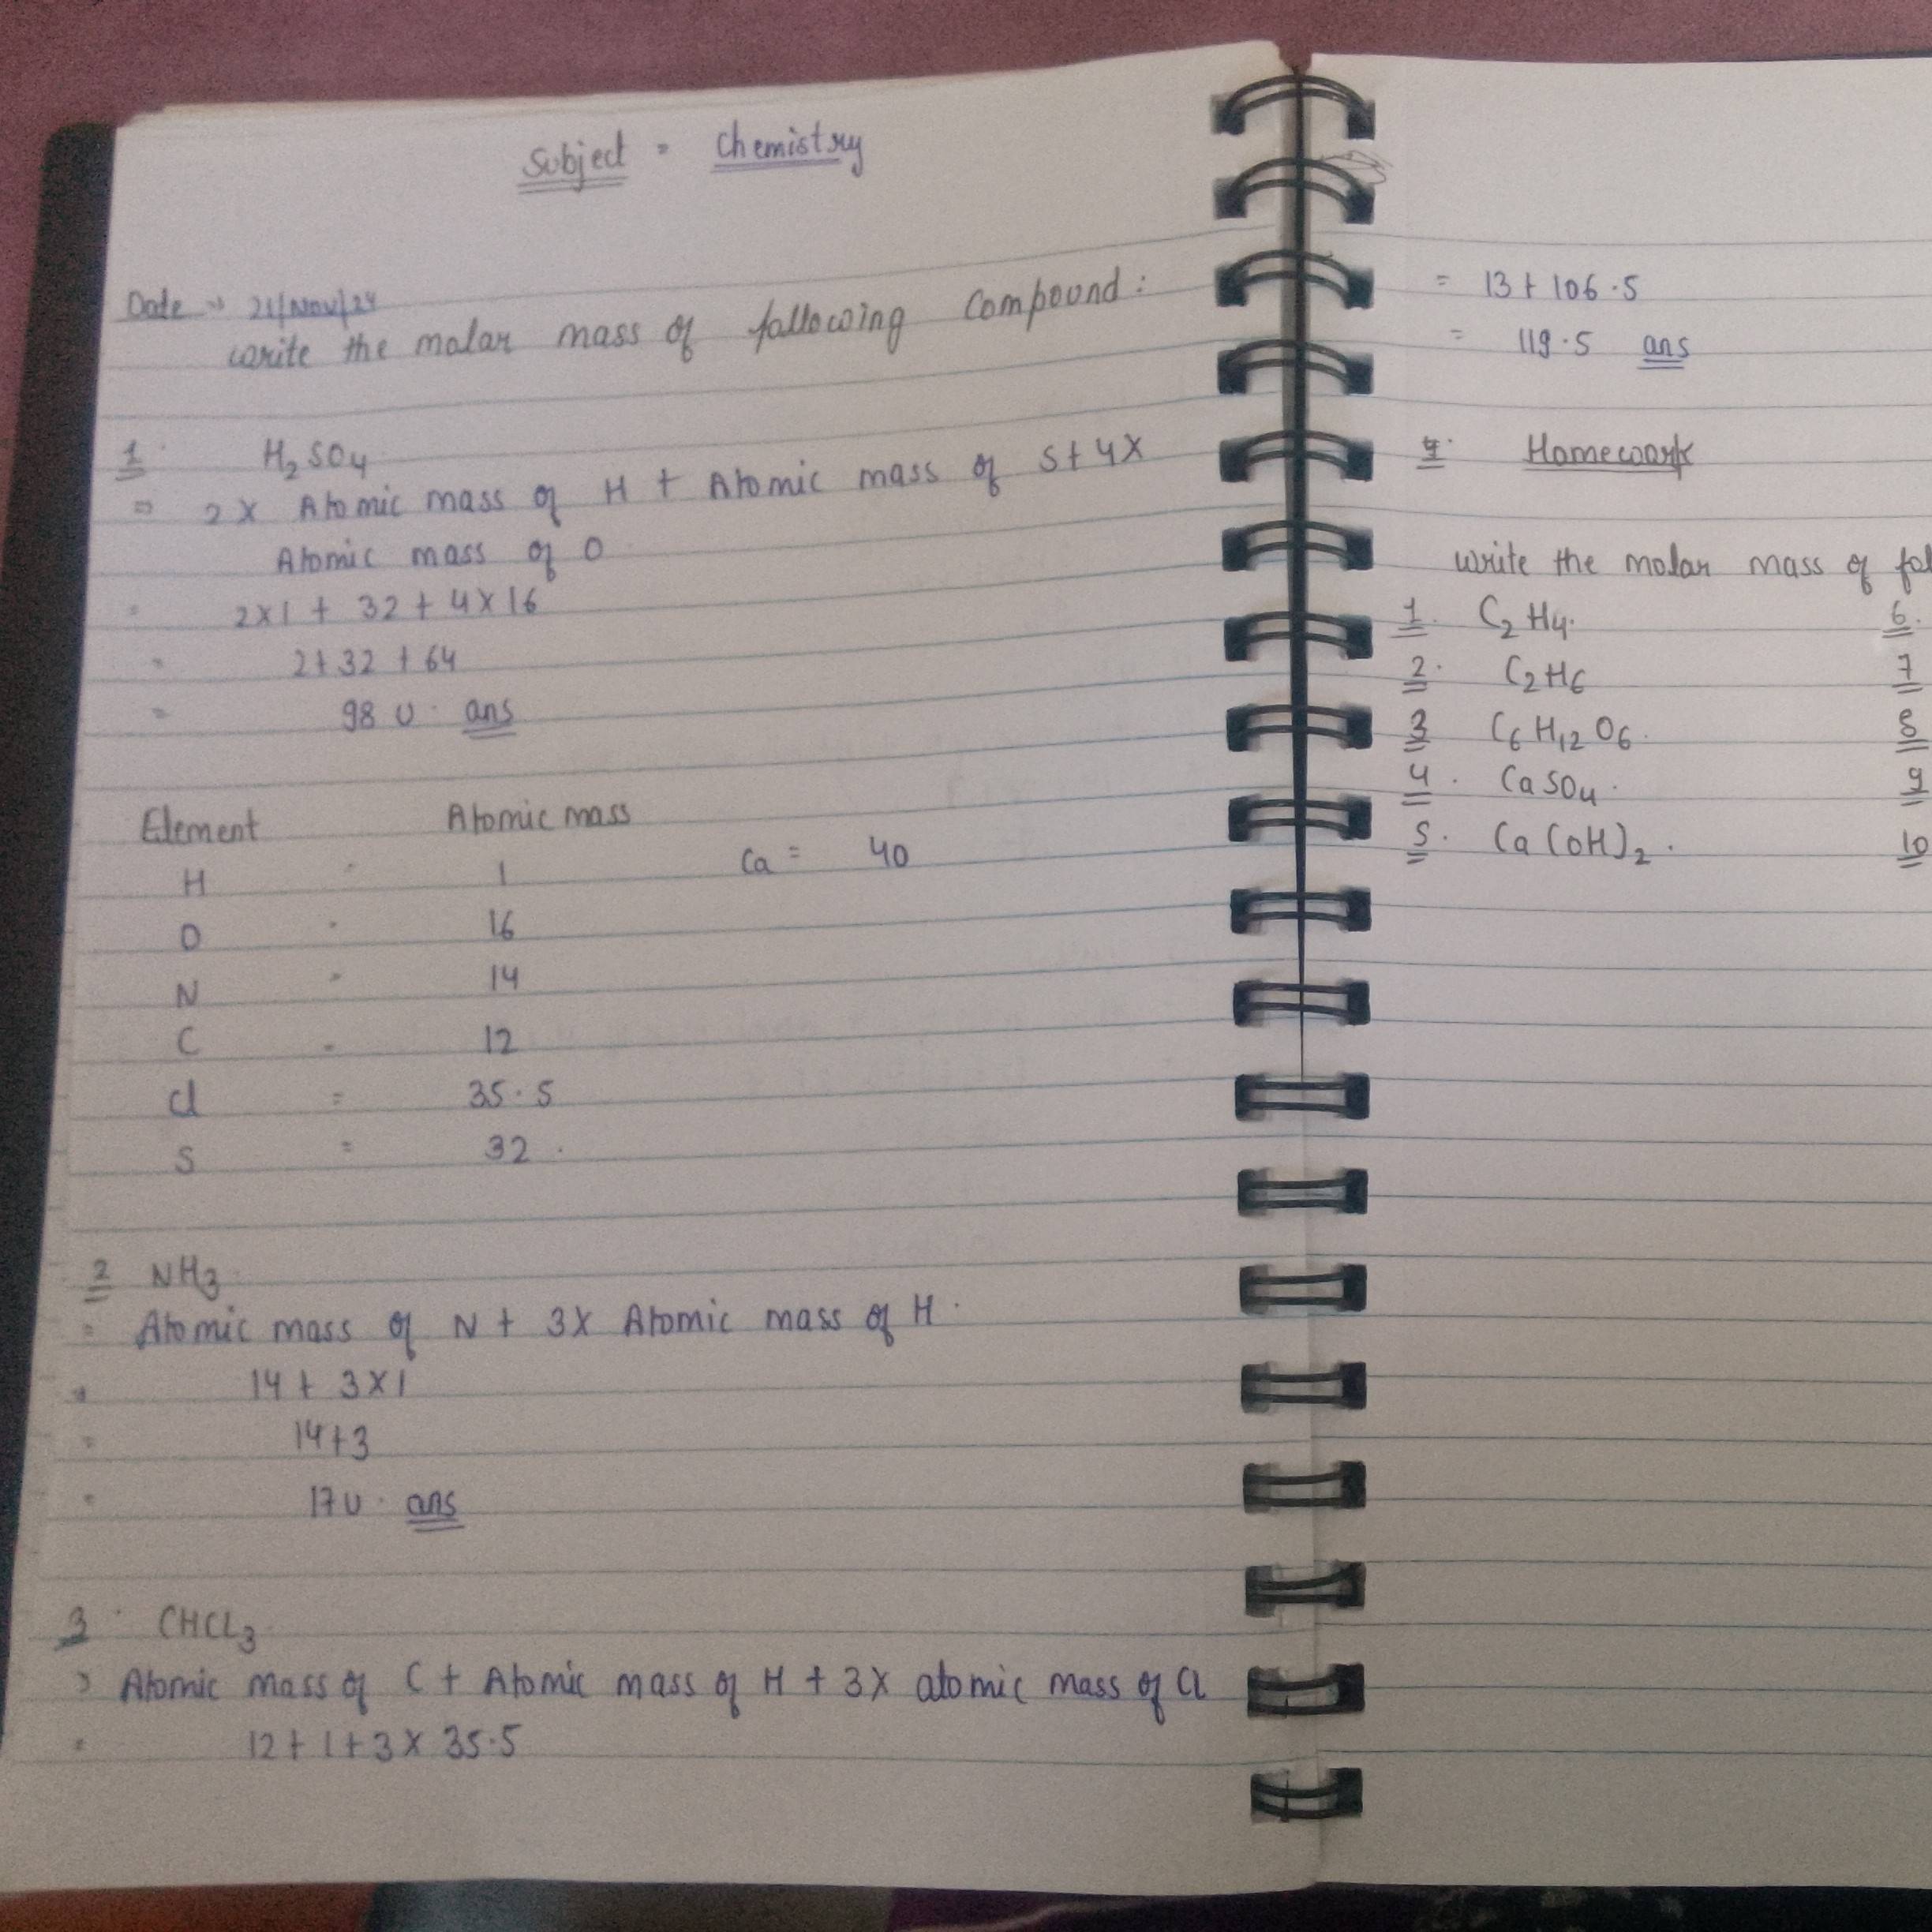 Subject = Chemistry
Date => 21/Nov/24
write the molar mass of following Compound:
1. H2SO4
=> 2X Atomic mass of H + Atomic mass of S+4X
Atomic mass of O
= 2x1 + 32 + 4x16
= 2+32 +64
= 98 U. ans
Element Atomic mass
H - 1 Ca = 40
O - 16
N - 14
C - 12
Cl = 35.5
S = 32.
2 NH3
= Atomic mass of N + 3X Atomic mass of H.
= 14 + 3x1
= 14+3
= 17U. ans
3. CHCL3
= Atomic mass of C + Atomic mass of H + 3X atomic mass of Cl
= 12+1+3x 35.5
= 13+ 106.5
= 119.5 ans
Homework
write the molar mass of
1. C2H4.
2. C2H6
3 C6H12O6.
4. CaSO4.
5. Ca(OH)2.
6.
7
8
9
10